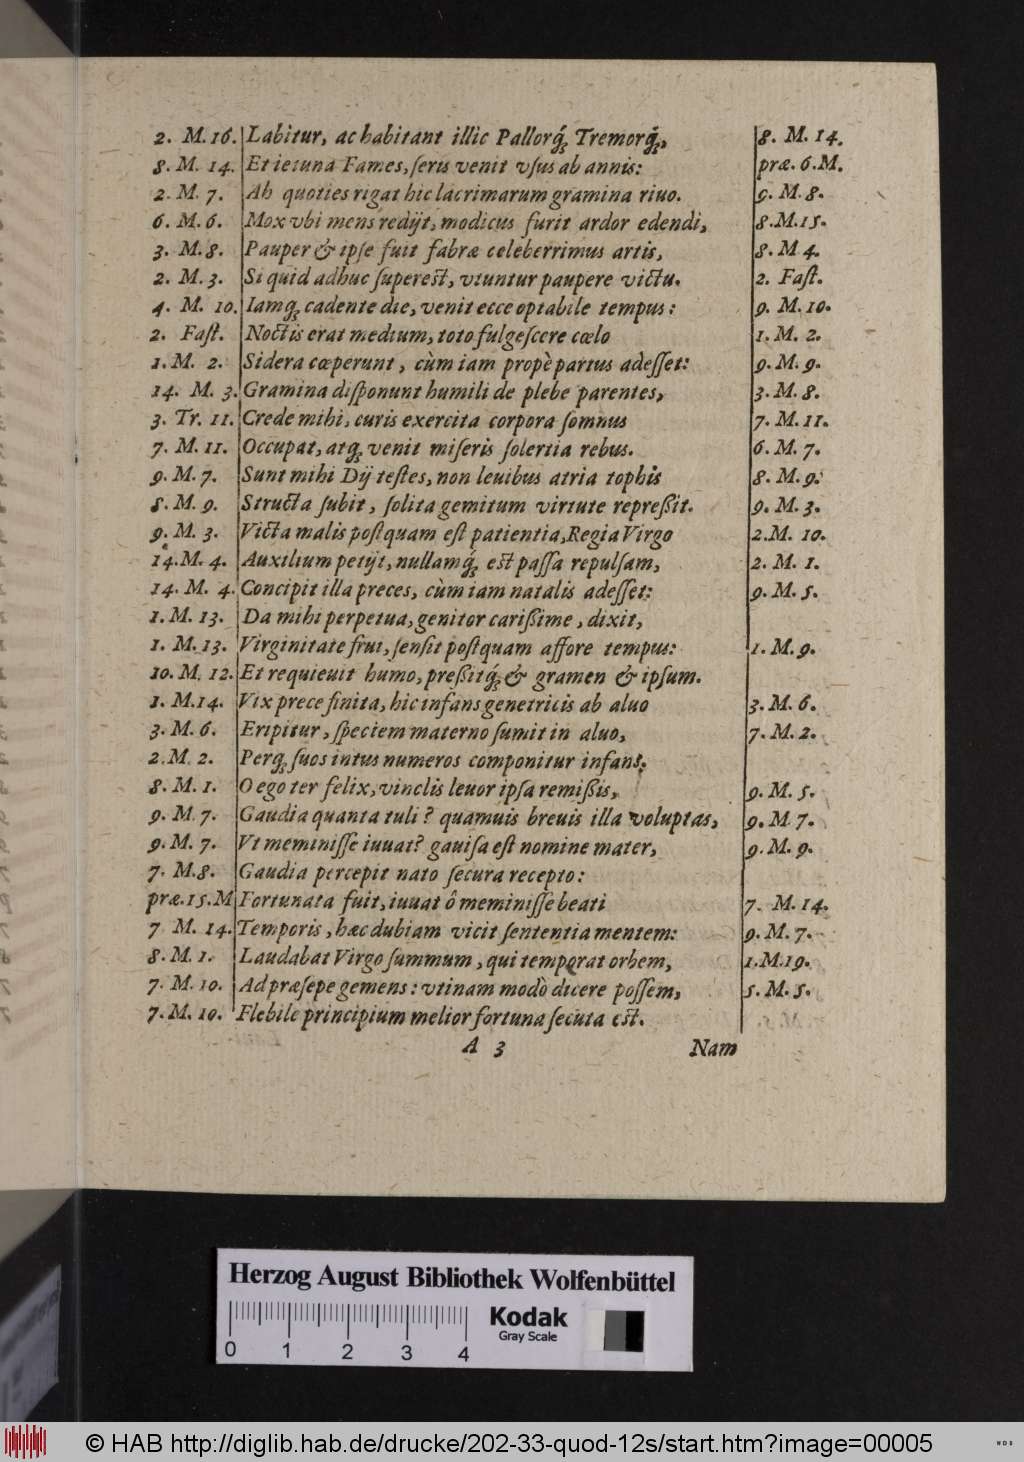 2. M. 16. Labitur, ac habitant illic Pallorq́; Tremorq́;, 8. M. 14.
8. M. 14. Et ieiuna Fames, seris venit vsus ab annis: præ. 6. M.
2. M. 7. Ah quoties rigat hic lacrimarum gramina riuo. 9. M. 8.
6. M. 6. Mox vbi mens redijt, modicus furit ardor edendi, 8. M. 15.
3. M. 8. Pauper & ipse fuit fabræ celeberrimus artis, 8. M 4.
2. M. 3. Si quid adhuc superest, vtuntur paupere victu. 2. Fast.
4. M. 10. Iamq; cadente die, venit ecce optabile tempus: 9. M. 10.
2. Fast. Noctis erat medium, toto fulgescere cœlo 1. M. 2.
1. M. 2. Sidera cœperunt, cùm iam propè partus adesset: 9. M. 9.
14. M. 3. Gramina disponunt humili de plebe parentes, 3. M. 8.
3. Tr. 11. Crede mihi, curis exercita corpora somnus 7. M. 11.
7. M. 11. Occupat, atq; venit miseris solertia rebus. 6. M. 7.
9. M. 7. Sunt mihi Dij testes, non leuibus atria tophis 8. M. 9.
8. M. 9. Structa subit, solita gemitum virtute repreßit. 9. M. 3.
9. M. 3. Victa malis postquam est patientia, Regia Virgo 2. M. 10.
14. M. 4. Auxilium petijt, nullamq́; est passa repulsam, 2. M. 1.
14. M. 4. Concipit illa preces, cùm iam natalis adesset: 9. M. 5.
1. M. 13. Da mihi perpetua, genitor carißime, dixit,
1. M. 13. Virginitate frui, sensit postquam affore tempus: 1. M. 9.
10. M. 12. Et requieuit humo, preßitq́; & gramen & ipsum.
1. M. 14. Vix prece finita, hic infans genetricis ab aluo 3. M. 6.
3. M. 6. Eripitur, speciem materno sumit in aluo, 7. M. 2.
2. M. 2. Perq; suos intus numeros componitur infans.
8. M. 1. O ego ter felix, vinclis leuor ipsa remißis, 9. M. 5.
9. M. 7. Gaudia quanta tuli? quamuis breuis illa voluptas, 9. M 7.
9. M. 7. Vt meminisse iuuat? gauisa est nomine mater, 9. M. 9.
7. M. 8. Gaudia percepit nato secura recepto:
præ. 15. M Fortunata fuit, iuuat ô meminisse beati 7. M. 14.
7 M. 14. Temporis, hæc dubiam vicit sententia mentem: 9. M. 7.
8. M. 1. Laudabat Virgo summum, qui temperat orbem, 1. M. 19.
7. M. 10. Ad præsepe gemens: vtinam modò dicere possem, 5. M. 5.
7. M. 10. Flebile principium melior fortuna secuta est.
A 3 Nam
Herzog August Bibliothek Wolfenbüttel
Kodak
Gray Scale
0 1 2 3 4
© HAB http://diglib.hab.de/drucke/202-33-quod-12s/start.htm?image=00005